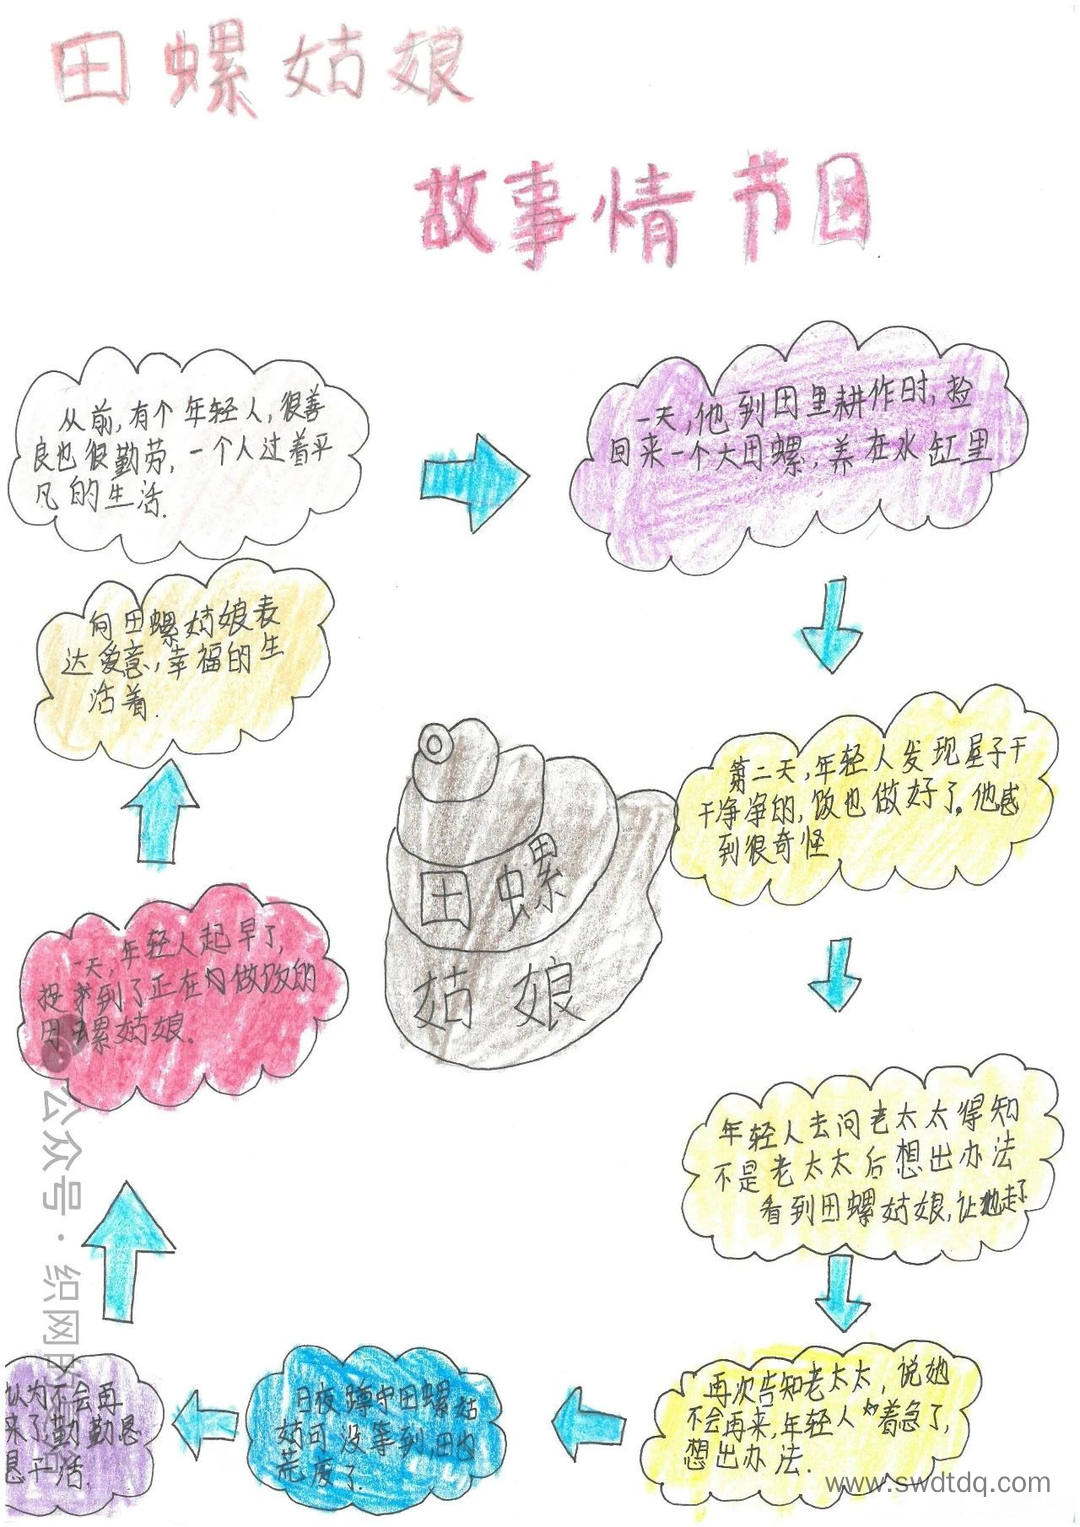 田螺姑娘
故事情节图
从前,有个年轻人,很善
良也很勤劳,一个人过着平
凡的生活.
一天,他到田里耕作时,捡
回来一个大田螺,养在水缸里
第二天,年轻人发现屋子干
干净净的,饭也做好了。他感
到很奇怪
年轻人去问老太太得知
不是老太太后想出办法
看到田螺姑娘,让她走了
再次告知老太太,说她
不会再来,年轻人着急了,
想出办法.
日夜蹲守田螺姑
姑可没等到,田也
荒废了.
认为不会再
来了,勤勤恳
恳干活.
一天,年轻人起早了,
捉到了正在做饭的
田螺姑娘.
向田螺姑娘表
达爱意,幸福的生
活着.
田螺
姑娘
公众号·织网
www.swdtdq.com